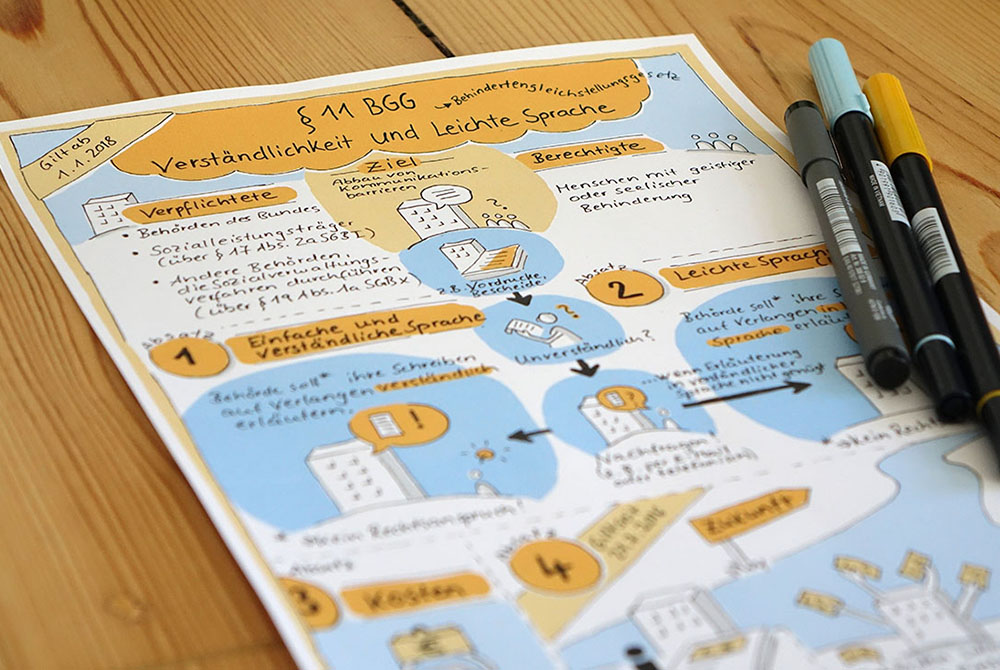 Gilt ab
1.1.2018
§ 11 BGG → Behindertengleichstellungsgesetz
Verständlichkeit und Leichte Sprache
Verpflichtete
• Behörden des Bundes
• Sozialleistungsträger
(über § 17 Abs. 2a SGB I)
• Andere Behörden,
die Sozialverwaltungs-
verfahren durchführen
(über § 19 Abs. 1a SGB X)
Ziel
Abbau von
Kommunikations-
barrieren
?
z.B. Vordrucke,
Bescheide
Berechtigte
Menschen mit geistiger
oder seelischer
Behinderung
?
Unverständlich?
Absatz
1
Einfache und
verständliche Sprache
Behörde soll* ihre Schreiben
auf Verlangen verständlich
erläutern.
!
Absatz
2
Leichte Sprache
Behörde soll* ihre
auf Verlangen in
Sprache
...wenn Erläuterung
in verständlicher
Sprache nicht genügt
?
Nachfragen
* → kein
Absatz
3
Kosten
€
Absatz
4
Zukunft